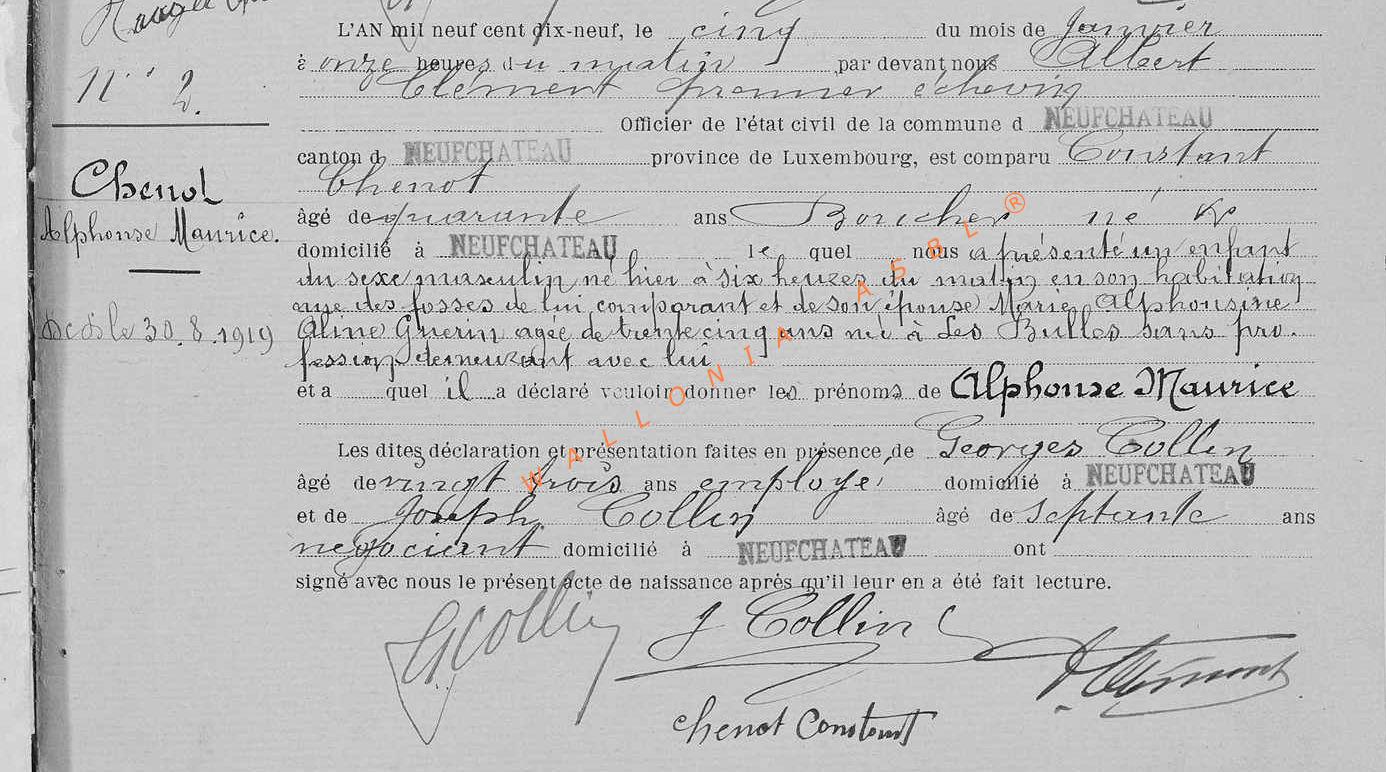 N° 2.
Chenot
Alphonse Maurice.
Décédé le 30.8.1919
L'AN mil neuf cent dix-neuf, le cinq du mois de Janvier
à onze heures du matin par devant nous Albert
Clément premier échevin
Officier de l'état civil de la commune d NEUFCHATEAU
canton d NEUFCHATEAU province de Luxembourg, est comparu Constant
Chenot
âgé de quarante ans Boucher né
domicilié à NEUFCHATEAU le quel nous a présenté un enfant
du sexe masculin né hier à six heures du matin en son habitation
rue des fosses de lui comparant et de son épouse Marie Alphonsine
Aline Guerin agée de trente cinq ans née à Les Bulles sans pro-
fession demeurant avec lui
et a quel il a déclaré vouloir donner les prénoms de Alphonse Maurice
Les dites déclaration et présentation faites en présence de Georges Collin
âgé de vingt trois ans employé domicilié à NEUFCHATEAU
et de Joseph Collin âgé de septante ans
négociant domicilié à NEUFCHATEAU ont
signé avec nous le présent acte de naissance après qu'il leur en a été fait lecture.
G Collin J Collin A Clément
Chenot Constant
WALLONIA ASBL ®